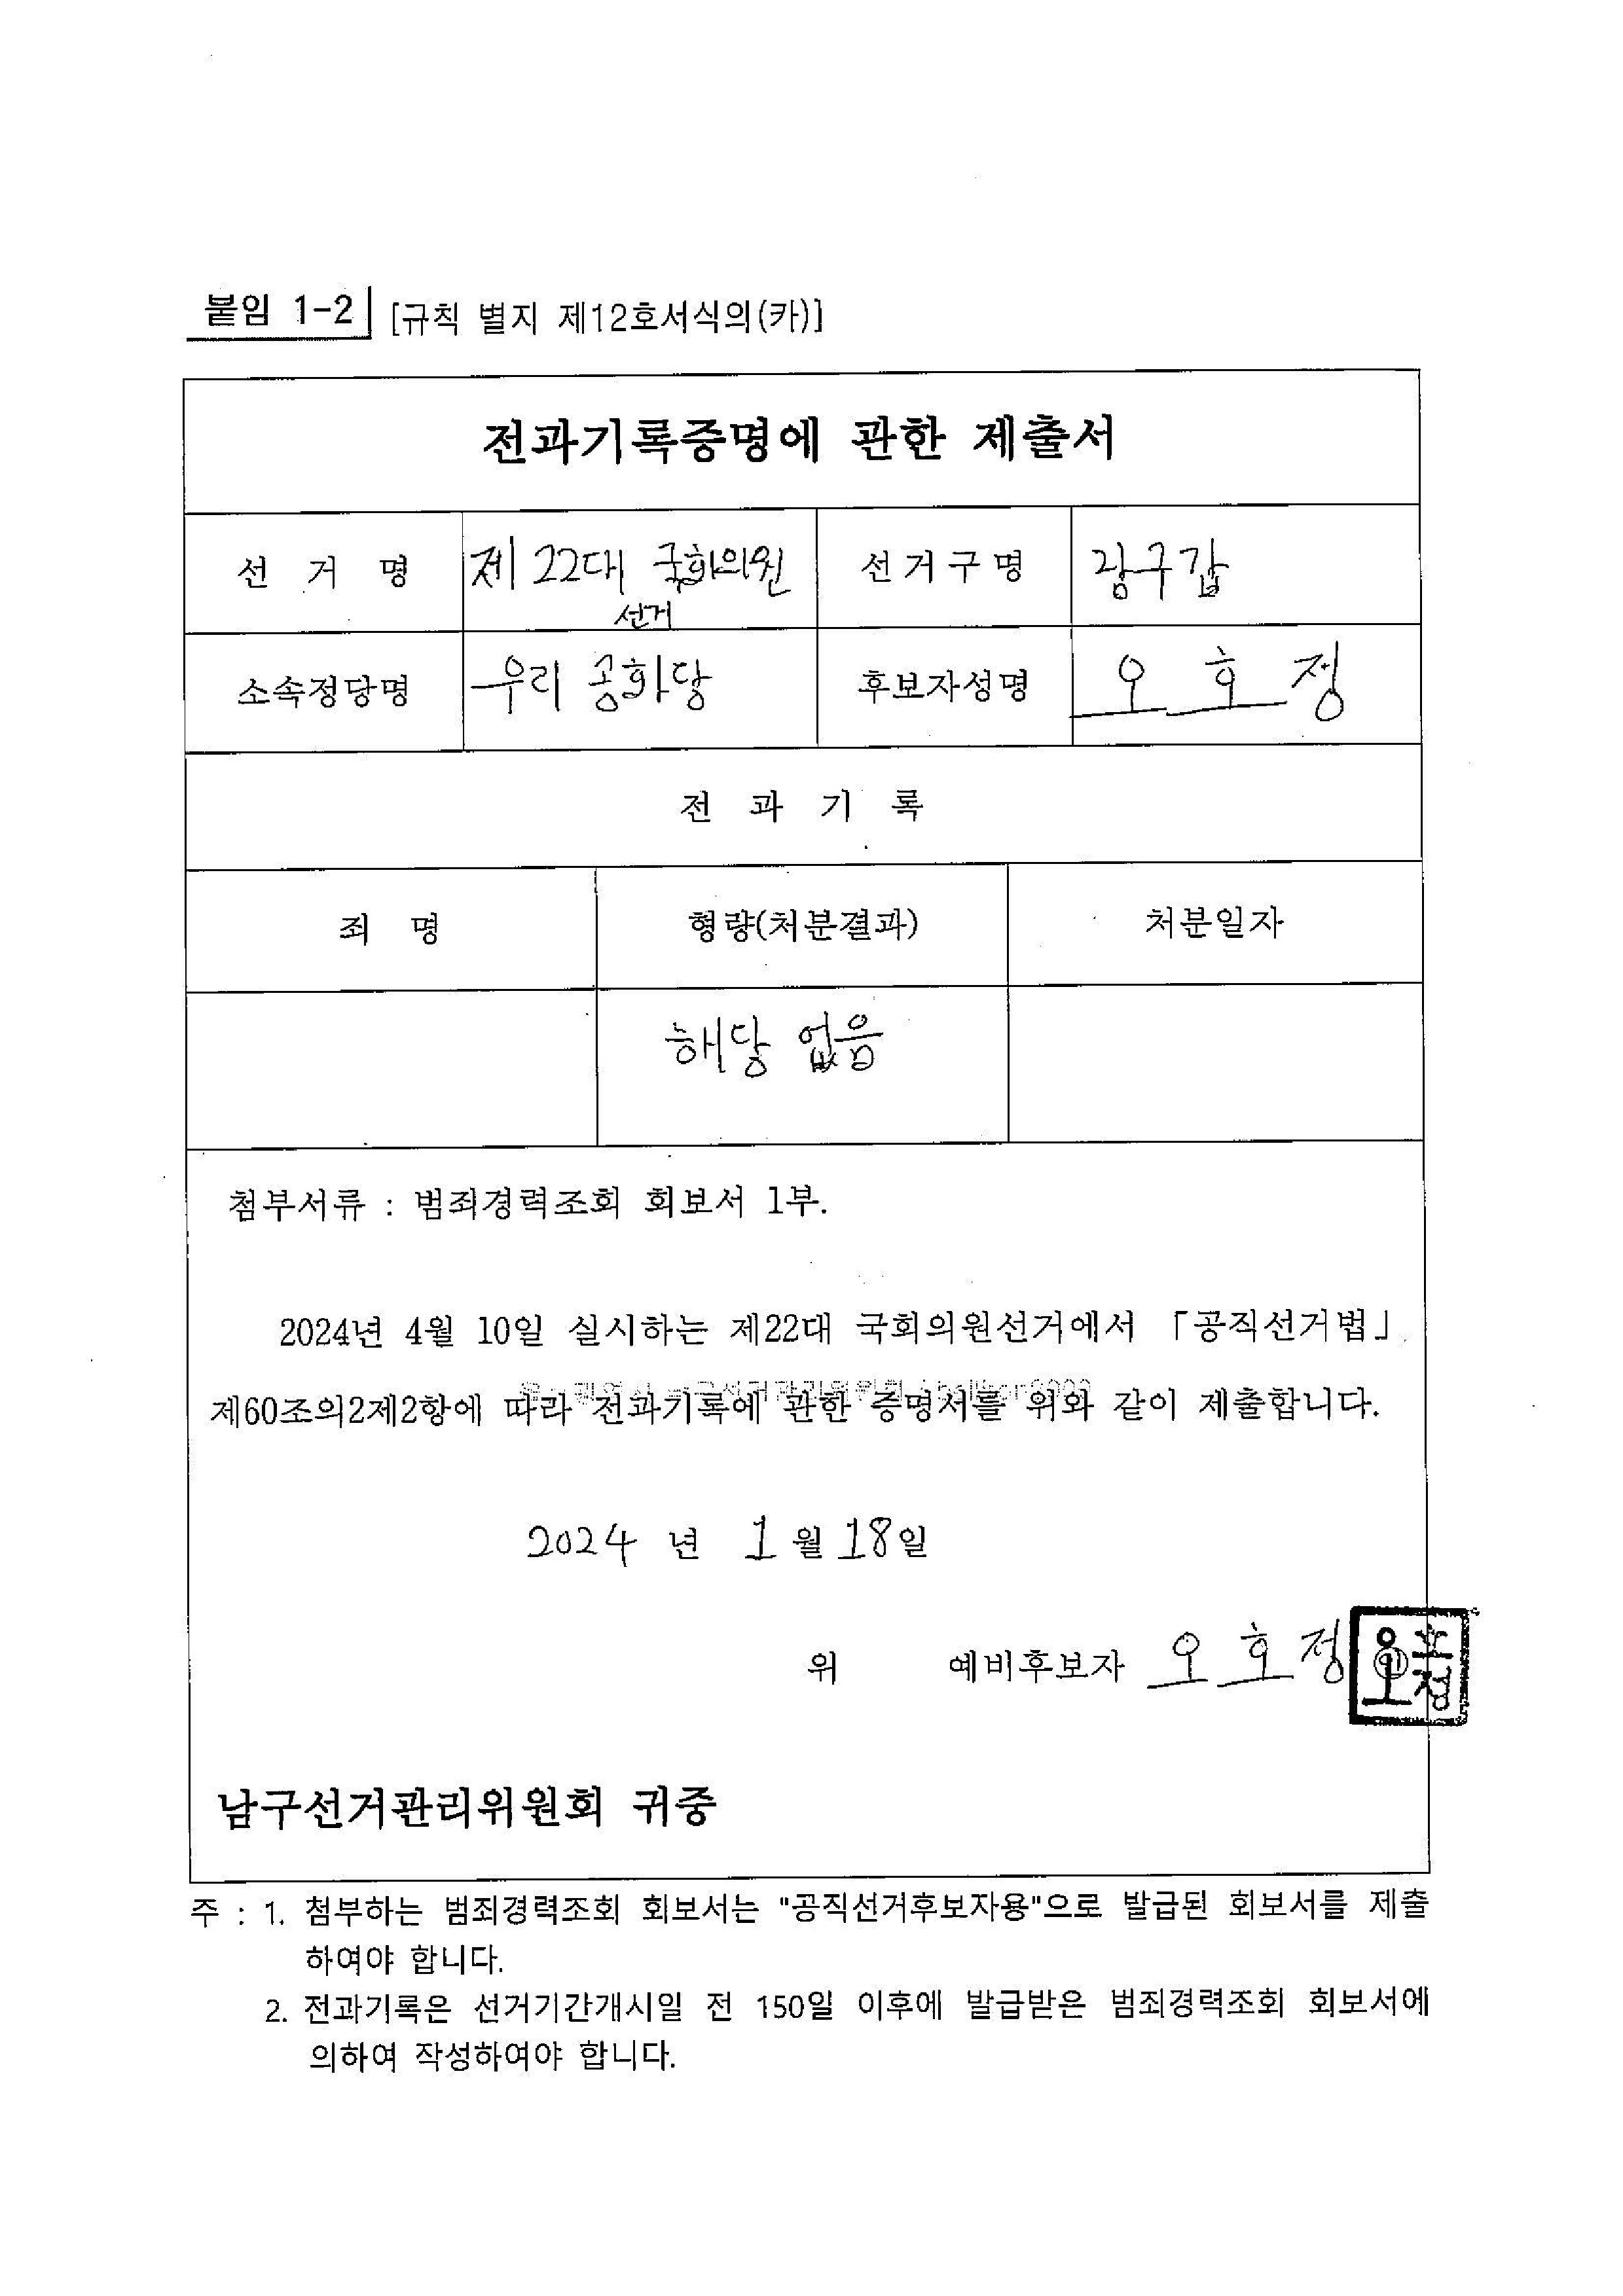 붙임 1-2 [규칙 별지 제12호서식의(카)]
전과기록증명에 관한 제출서
선 거 명 제22대 국회의원 선거구명 남구갑
선거
소속정당명 우리 공화당 후보자성명 오 호 정
전 과 기 록
죄 명 형량(처분결과) 처분일자
해당 없음
첨부서류 : 범죄경력조회 회보서 1부.
2024년 4월 10일 실시하는 제22대 국회의원선거에서 「공직선거법」
제60조의2제2항에 따라 전과기록에 관한 증명서를 위와 같이 제출합니다.
2024 년 1 월 18일
위 예비후보자 오 호 정
남구선거관리위원회 귀중
주 : 1. 첨부하는 범죄경력조회 회보서는 "공직선거후보자용"으로 발급된 회보서를 제출
하여야 합니다.
2. 전과기록은 선거기간개시일 전 150일 이후에 발급받은 범죄경력조회 회보서에
의하여 작성하여야 합니다.